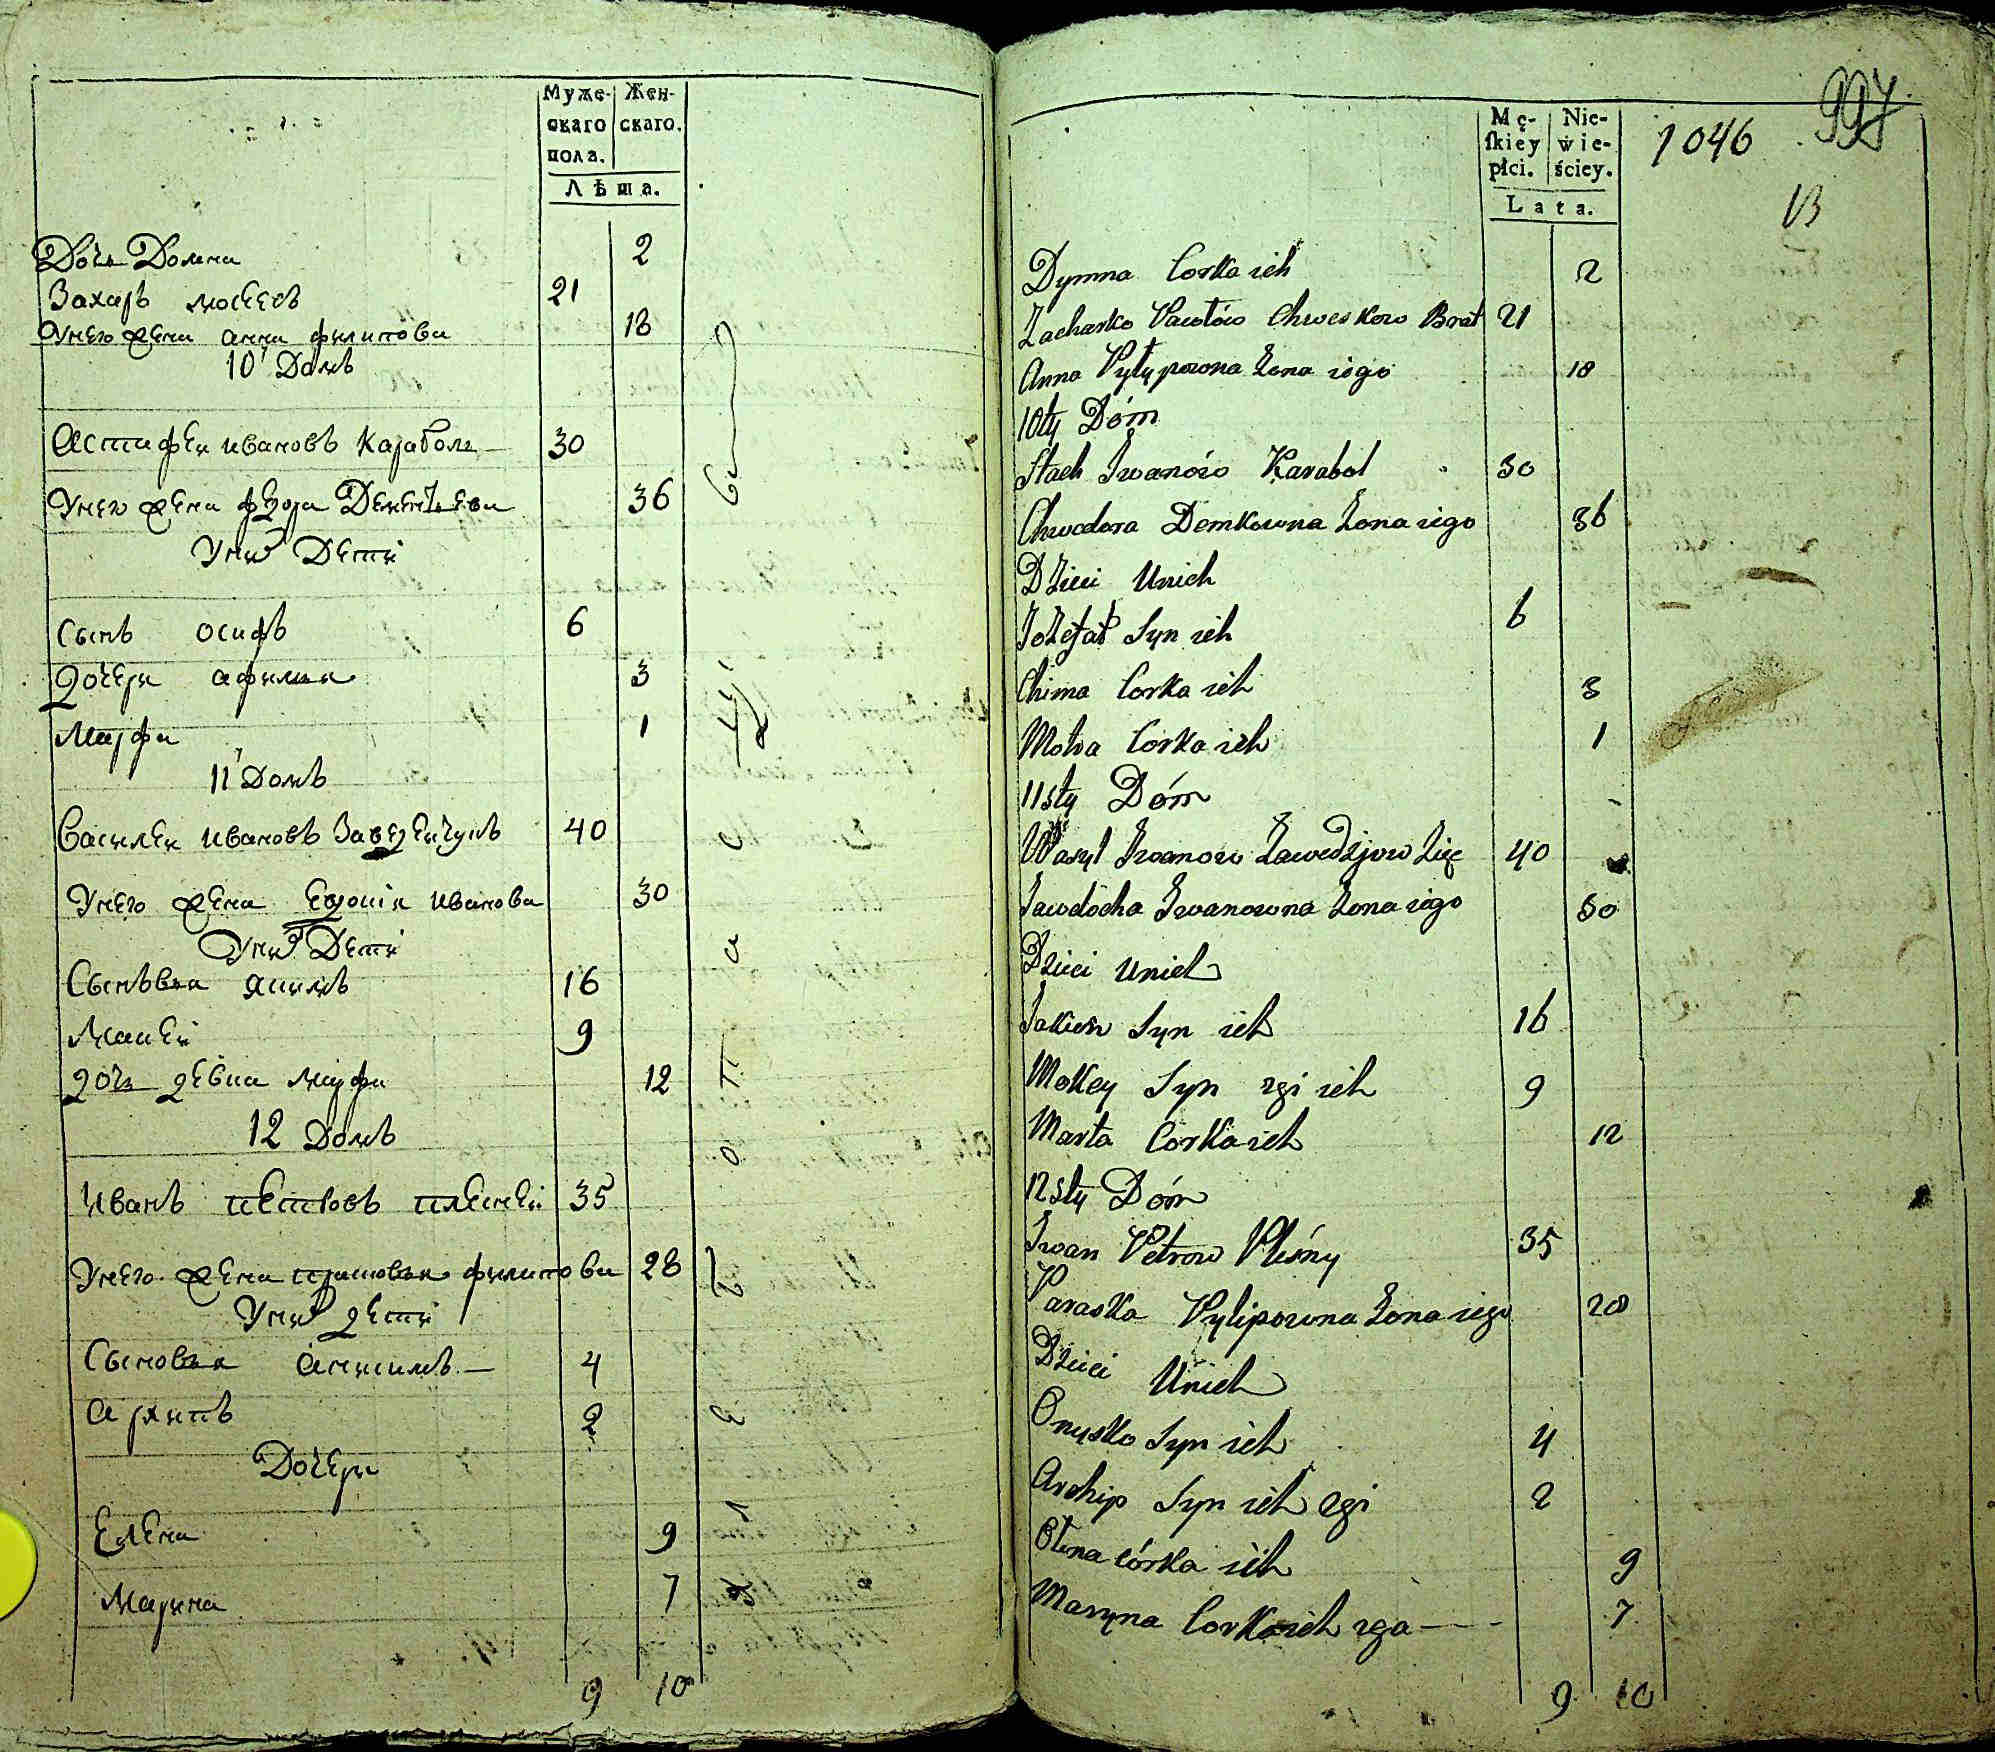 Муже-
скаго
пола.
Жен-
скаго.
Лѣта.
Дочь Домна 2
Захаръ Мосеевъ 21
У него жена Анна Филипова 18
10 Домъ
Астафей Ивановъ Караболь 30
У него жена Федора Дементьева 36
У них Дети
Сынъ Осифъ 6
Дочери Афимья 3
Марфа 1
11 Домъ
Василей Ивановъ 40
У него жена Ивановна 30
У них Дети
Сыновья Якимъ 16
Макей 9
дочь девка Марфа 12
12 Домъ
Иванъ Петровъ Плесней 35
У него жена Прасковья Филипова 28
У них дети
Сыновья Анисимъ 4
Архипъ 2
Дочери
Елена 9
Марина 7
9 10
Mę-
skiey
płci.
Nie-
wie-
ściey.
Lata.
1046
997
13
Dymna Corka ich 2
Zacharko Pawłów Chweskow Brat 21
Anna Pyłypowna Żona iego 18
10ty Dóm
Stach Iwanów Karabol 30
Chwedora Demkowna Żona iego 36
Dzieci Unich
Jozefat Syn ich 6
Chima Corka ich 3
Motra Corka ich 1
11sty Dóm
Wasyl Iwanow Zawedzjow Zięć 40
Jawdocha Iwanowna Żona iego 30
Dzieci Unich
Jakim Syn ich 16
Mokey Syn 2gi ich 9
Marta Corka ich 12
12sty Dóm
Iwan Petrow Pleśny 35
Paraska Pylipowna Żona iego 28
Dzieci Unich
Onysko Syn ich 4
Archip Syn ich 2gi 2
Ołena córka ich 9
Maryna Corka ich 2ga 7
9 10